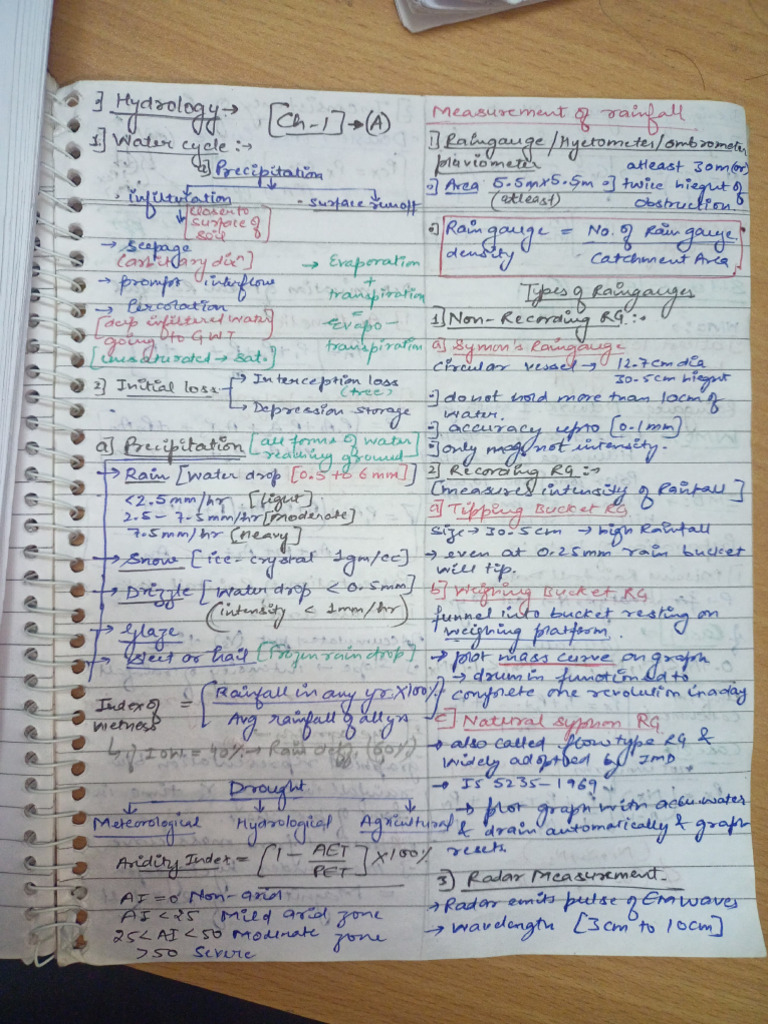 Hydrology:→ [Ch-1]→(A)
1] Water cycle:→
a] Precipitation
infilteration · surface runoff
[closer to surface of soil]
→ Seepage
(arbitrary dirⁿ)
→ prompt interflow
→ Percolation
[deep infiltered water going to GWT]
[unsaturated → sat.]
→ Evaporation
+
transpiration
=
Evapo-
transpiration
2] Initial loss → Interception loss
(tree)
→ Depression storage
a] Precipitation [all forms of water reaching ground]
→ Rain [water drop [0.5 to 6mm]]
<2.5mm/hr [light]
2.5-7.5mm/hr [moderate]
7.5mm/hr [heavy]
→ Snow [ice-crystal 1gm/cc]
→ Drizzle [water drop < 0.5mm]
(intensity < 1mm/hr)
→ Glaze
→ sleet or hail [frozen rain drop]
Index of wetness = [Rainfall in any yr. X100% / Avg rainfall of all yrs]
↳ if IOW = 40% → Rain def. (60%)
Drought
Meteorological Hydrological Agricultural
Aridity Index = [1 - AET/PET] X100%
AI = 0 Non-arid
AI <25 Mild arid zone
25<AI<50 Moderate zone
>50 Severe
Measurement of rainfall
1] Raingauge/Hyetometer/ombrometer
pluviometer atleast 30m (or)
Area 5.5m x 5.5m twice hieght of
(atleast) obstruction.
Raingauge density = No. of Raingauge / Catchment Area
Types of Raingauges
1] Non-Recording RG:-
a] Symon's Raingauge
circular vessel → 12.7cm dia
30.5cm hieght
do not hold more than 10cm of
water.
accuracy upto [0.1mm]
only mag. not intensity.
2] Recording RG:→
[measures intensity of Rainfall]
a] Tipping Bucket RG
size → 30.5cm → high Rainfall
→ even at 0.25mm rain bucket
will tip.
b] Weighing Bucket RG
funnel into bucket resting on
weighing platform.
→ plot mass curve on graph
→ drum in functioned to
complete one revolution in a day
c] Natural syphon RG
→ also called flow type RG &
widely adopted by IMD
→ IS 5235-1969
→ plot graph with accu. water
& drain automatically & graph
resets
3) Radar Measurement.
→ Radar emits pulse of EM waves
→ wavelength [3cm to 10cm]